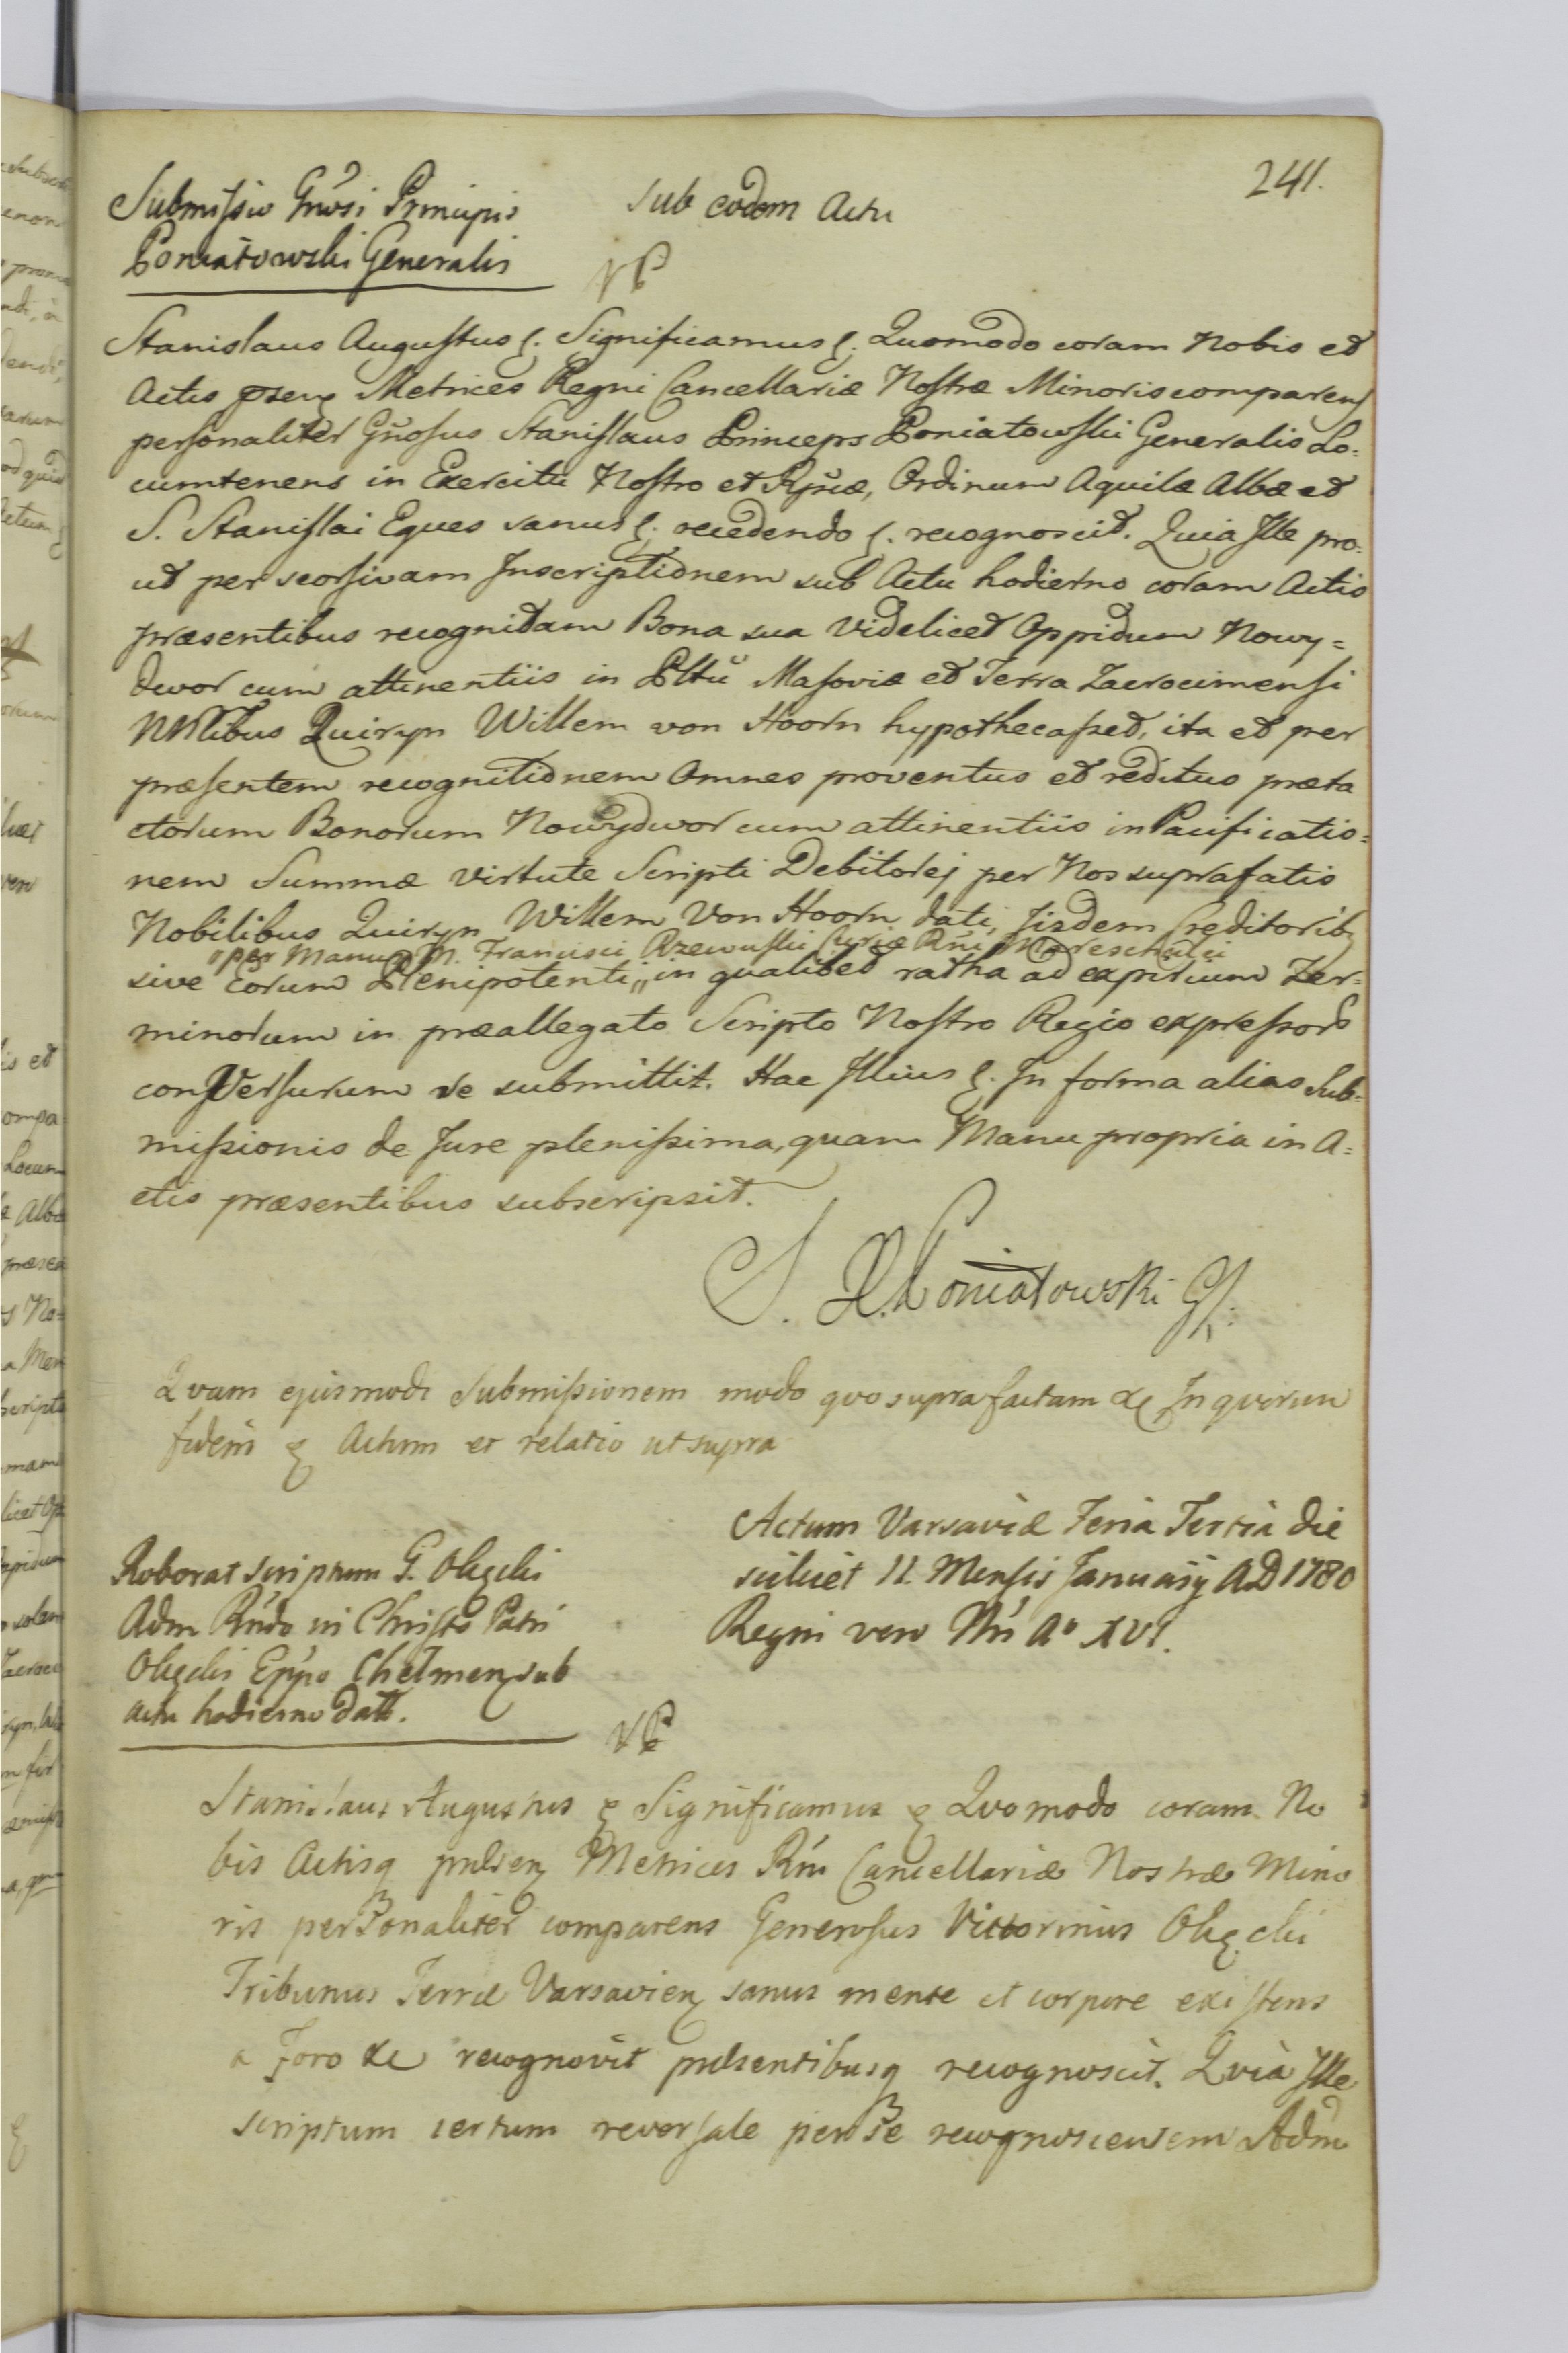 241.
Submissio Gnrosi Principis
Poniatowski Generalis
sub eodem Actu
Stanislaus Augustus &. Significamus &. Quomodo coram Nobis et
Actis præsen. Metrices Regni Cancellariæ Nostræ Minoris comparens
personaliter Gnosus Stanislaus Princeps Poniatowski Generalis Lo=
cumtenens in Exercitu Nostro et Rpcæ, Ordinum Aquilæ Albæ et
S. Stanislai Eques sanus &. recedendo &. recognoscit. Quia Ille pro=
ut per seorsivam Inscriptionem sub Actu hodierno coram Actis
præsentibus recognitam Bona sua videlicet Oppidum Nowy=
dwor cum attinentiis in Plttu Masoviæ et Terra Zacrocimensi
Nblibus Quiryn Willem von Hoorn hypothecasset, ita et per
præsentem recognitionem Omnes proventus et reditus præta
ctorum Bonorum Nowydwor cum attinentiis in Pacificatio=
nem Summæ virtute Scripti Debitorej per Nos suprafatis
Nobilibus Quiryn Willem Von Hoorn dati, Iisdem Creditorib9
"per Manus M. Francisci Rzewuski Curiæ Rni Mareschalci
sive eorum Plenipotenti,, in qualibet ratha ad expirium Ter=
minorum in præallegato Scripto Nostro Regio expressor
conversurum se submittit. Hac Illius &. In forma alias Sub=
missionis de Jure plenissima, quam Manu propria in A=
ctis præsentibus subscripsit.
S. X. Poniatowski GL:
Quam ejusmodi Submissionem modo quo supra factam &c In quorum
fidem & Actum et relatio ut supra
Actum Varsaviæ Feria Tertia die
scilicet 11. Mensis Januarij AD 1780
Regni vero Nri Ao XVI.
Roborat scriptum G. Olęcki
Adm Rndo in Christo Patri
Olęcki Eppo Chełmen sub
actu hodierno datt.
Stanislaus Augustus & Significamus & Quomodo coram No
bis Actisq præsen Metrices Rni Cancellariæ Nostræ Mino
ris personaliter comparens Generosus Victorinus Olęcki
Tribunus Terræ Varsavien sanus mente et corpore existens
a Foro &c recognovit præsentibusq recognoscit. Quia Ille
scriptum certum reversale per se recognoscentem Adm